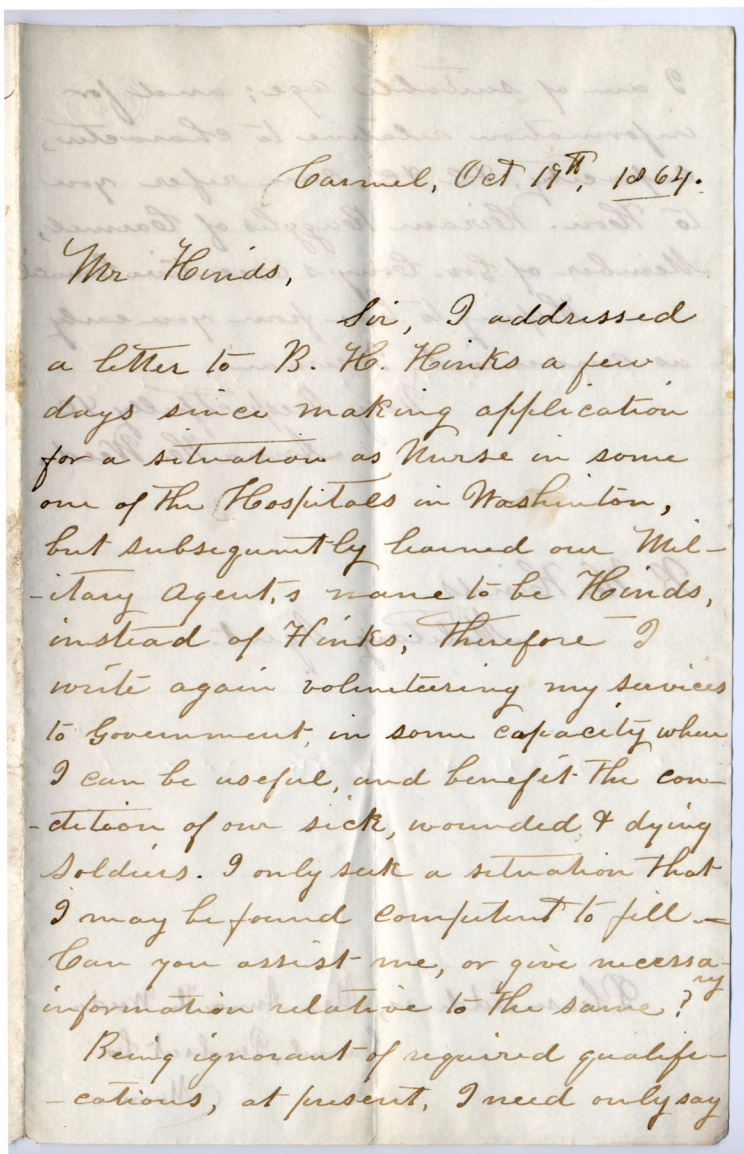 Carmel, Oct 19th, 1864.
Mr Hinds,
Sir, I addressed
a letter to B. H. Hinks a few
days since making application
for a situation as Nurse in some
one of the Hospitals in Washinton,
but subsequently learned our Mil-
-itary Agent,s name to be Hinds,
instead of Hinks; therefore I
write again volunteering my services
to Government, in some capacity where
I can be useful, and benefit the con-
-dition of our sick, wounded & dying
Soldiers. I only seek a situation that
I may be found competent to fill -
Can you assist me, or give necessa-
ry
information relative to the same?
Being ignorant of required qualifi-
-cations, at present, I need only say